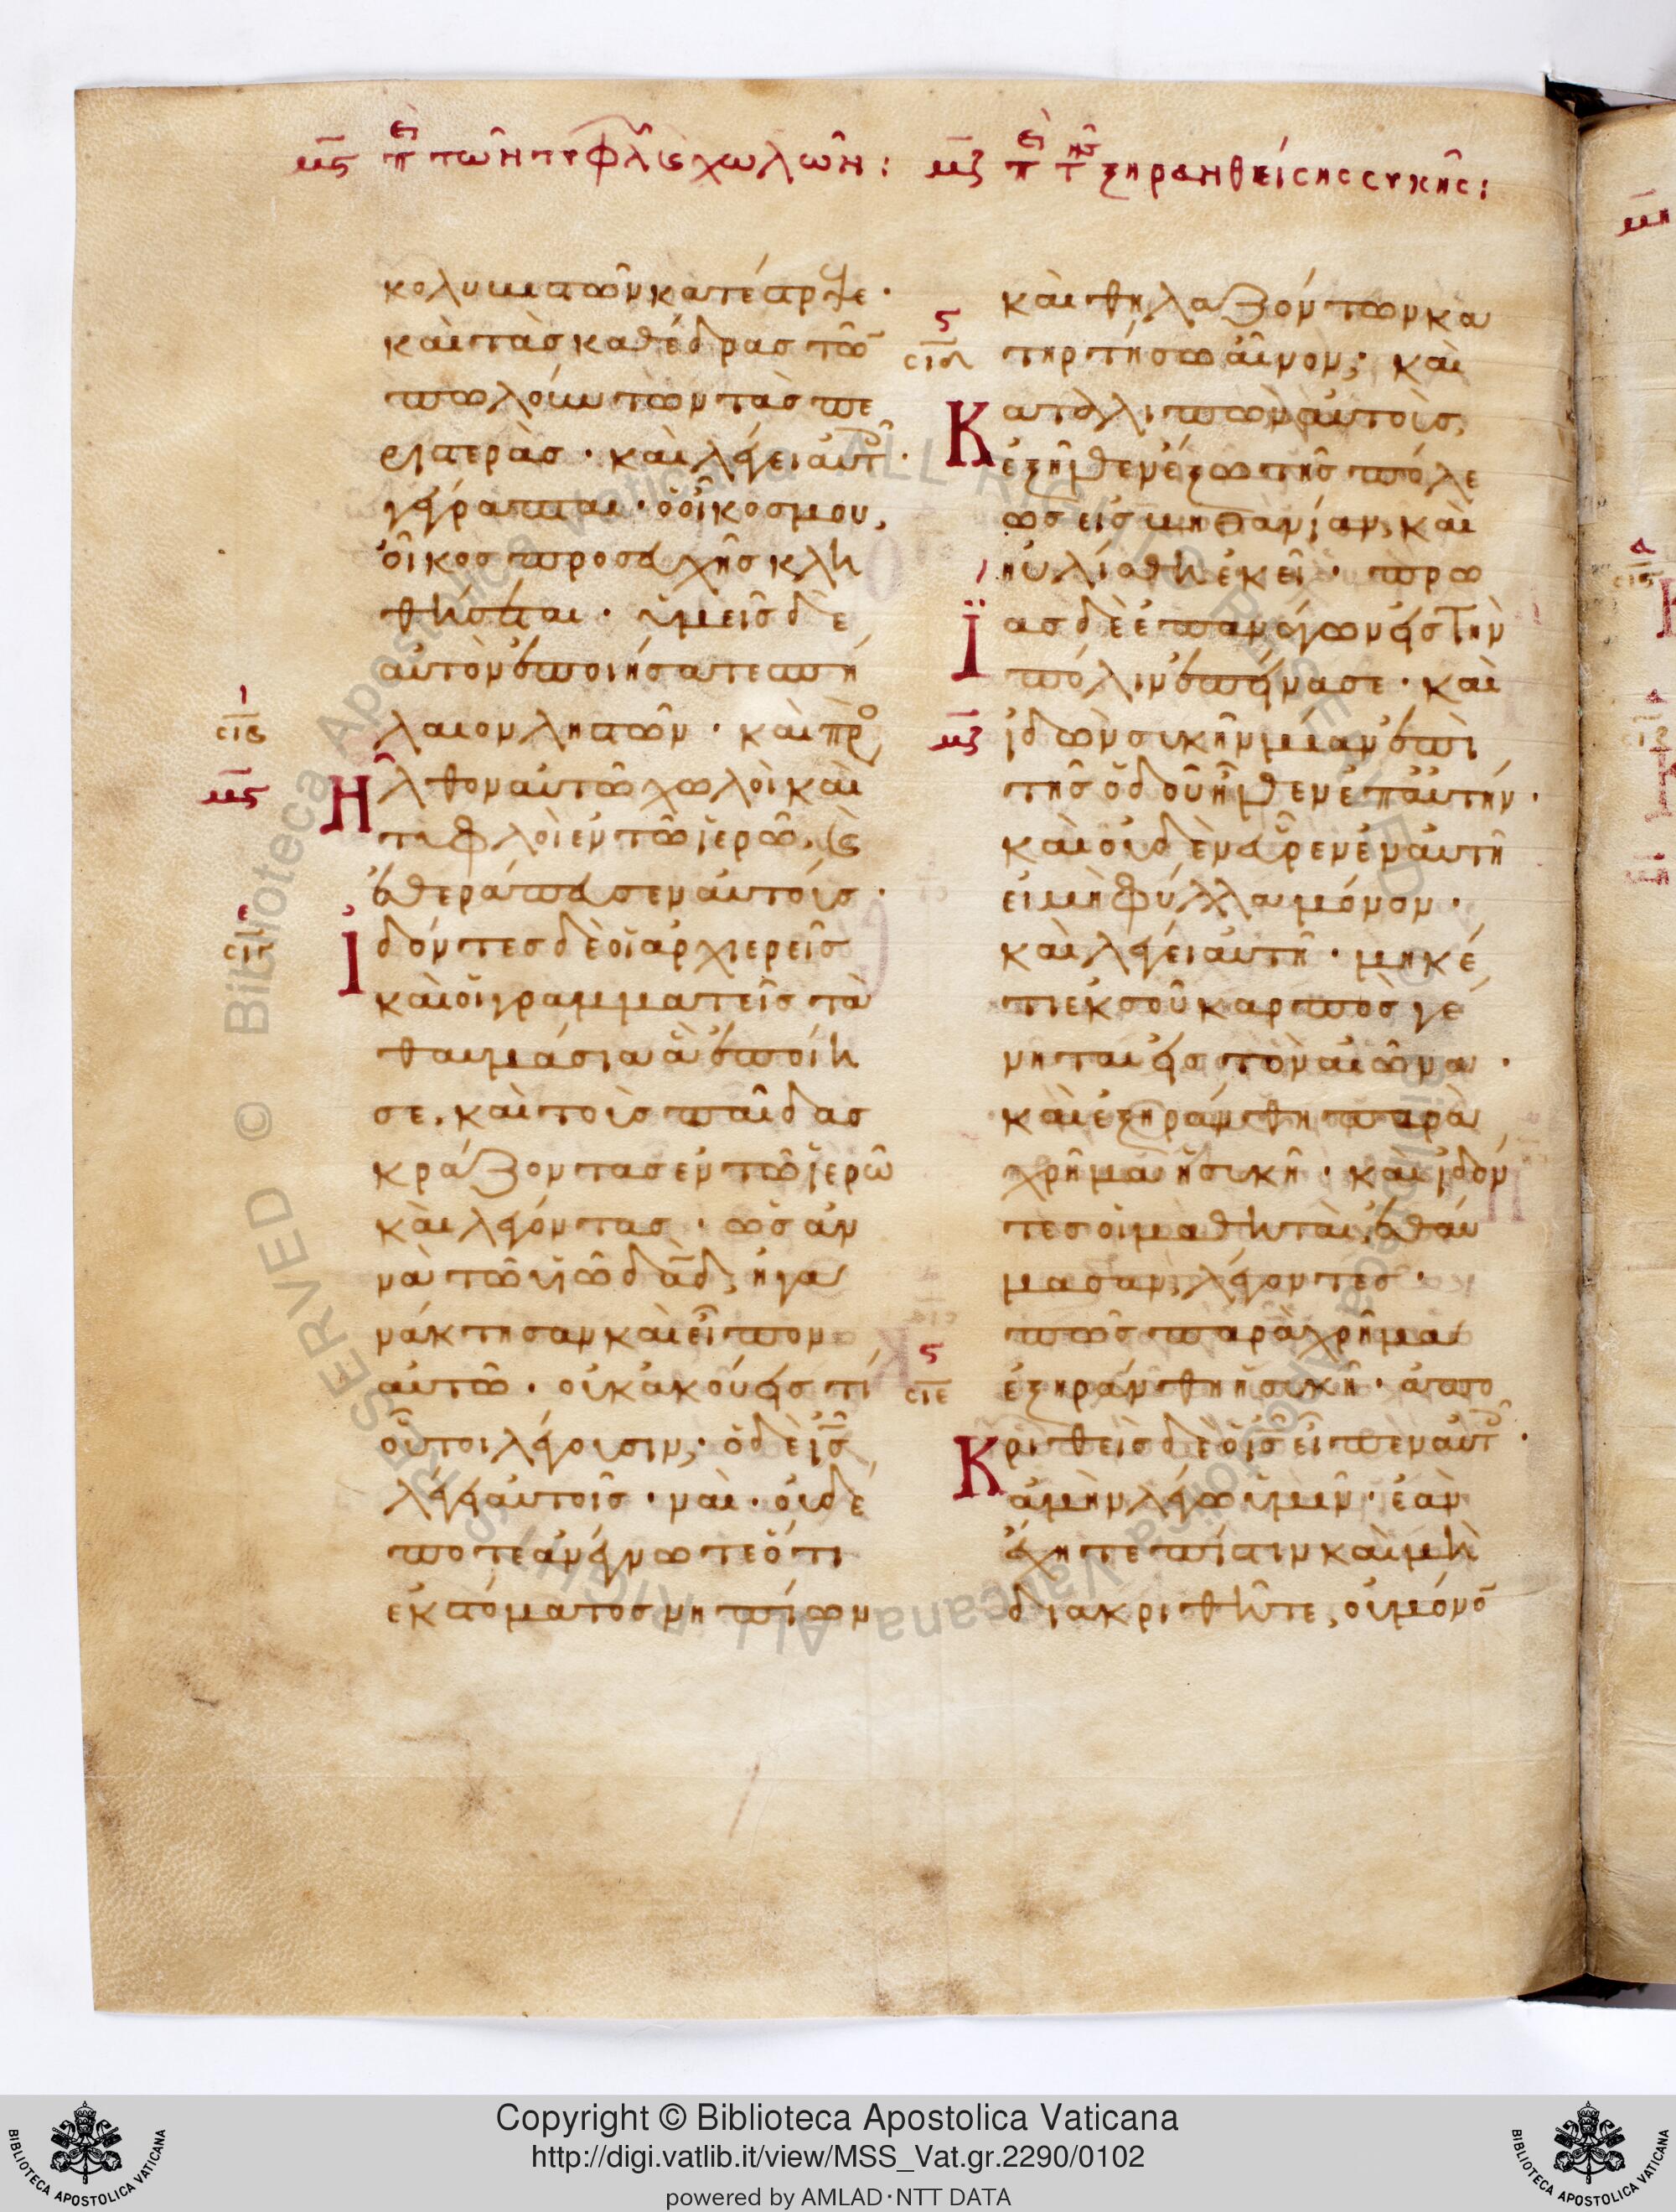 μς περὶ τῶν τυφλῶν ϗ χωλῶν:
μζ περὶ τῆς ξηρανθείσης συκῆς:
κολυβιστῶν κατέστρεψε·
καὶ τὰς καθέδρας τῶ̅
πωλούντων τὰς πε
ριστεράς· καὶ λέγει αὐτ̅·
γέγραπται· ὁ οἶκος μου,
οἶκος προσευχῆς κλη
θήσεται· ὑμεῖς δὲ
αὐτὸν ἐποιήσατε σπή
λαιον ληστῶν· καὶ πρ̅ο
σιβ
μς
Ηλθον αὐτῶ χωλοὶ καὶ
τυφλοὶ ἐν τῶ ἱερῶ, ϗ
ἐθεράπευσεν αὐτούς·
Ιδόντες δὲ οἱ ἀρχιερεῖς
καὶ οἱ γραμματεῖς τὰ
θαυμάσια ἃ ἐποίη
σε, καὶ τοὺς παῖδας
κράζοντας ἐν τῶ ἱερῶ
καὶ λέγοντας· ὡσαν
νὰ τῶ υἱῶ δα̅δ, ἠγα
νάκτησαν καὶ εἶπον
αὐτῶ· οὐκ ἀκούεις τί
οὗτοι λέγουσιν; ὁ δὲ ι̅ς
λέγει αὐτοῖς· ναί· οὐδέ
ποτε ἀνέγνωτε ὅτι
ἐκ στόματος νηπίων
καὶ θηλαζόντων κα
σιδ
τηρτήσω αἶνον; καὶ
Καταλιπὼν αὐτοὺς,
ἐξῆλθεν ἔξω τῆς πόλε
ως εἰς βηθανίαν, καὶ
ηὐλίσθη ἐκεῖ· πρω
Ϊας δὲ ἐπανάγων εἰς τὴν
πόλιν ἐπείνασε· καὶ
μζ
ἰδὼν συκῆν μίαν ἐπὶ
τῆς ὁδοῦ ἦλθεν ἐπ' αὐτήν·
καὶ οὐδὲν εὗρεν ἐν αὐτῆ
εἰ μὴ φύλλα μόνον·
καὶ λέγει αὐτῆ· μηκέ
τι ἐκ σοῦ καρπὸς γέ
νηται εἰς τὸν αἰῶνα·
καὶ ἐξηράνθη παρὰ
χρῆμα ἡ συκῆ· καὶ ἰδόν
τες οἱ μαθηταὶ ἐθαύ
μασαν, λέγοντες·
πῶς παρὰ χρῆμα
σιε
ἐξηράνθη ἡ συκῆ· ἀπο
Κριθεὶς δὲ ὁ ι̅ς εἶπεν αὐτ̅·
ἀμὴν λέγω ὑμῖν· ἐὰν
ἔχητε πίστιν καὶ μὴ
διακριθῆτε, οὐ μόνο̅
Copyright © Biblioteca Apostolica Vaticana
http://digi.vatlib.it/view/MSS_Vat.gr.2290/0102
powered by AMLAD·NTT DATA
BIBLIOTECA APOSTOLICA VATICANA
BIBLIOTECA APOSTOLICA VATICANA